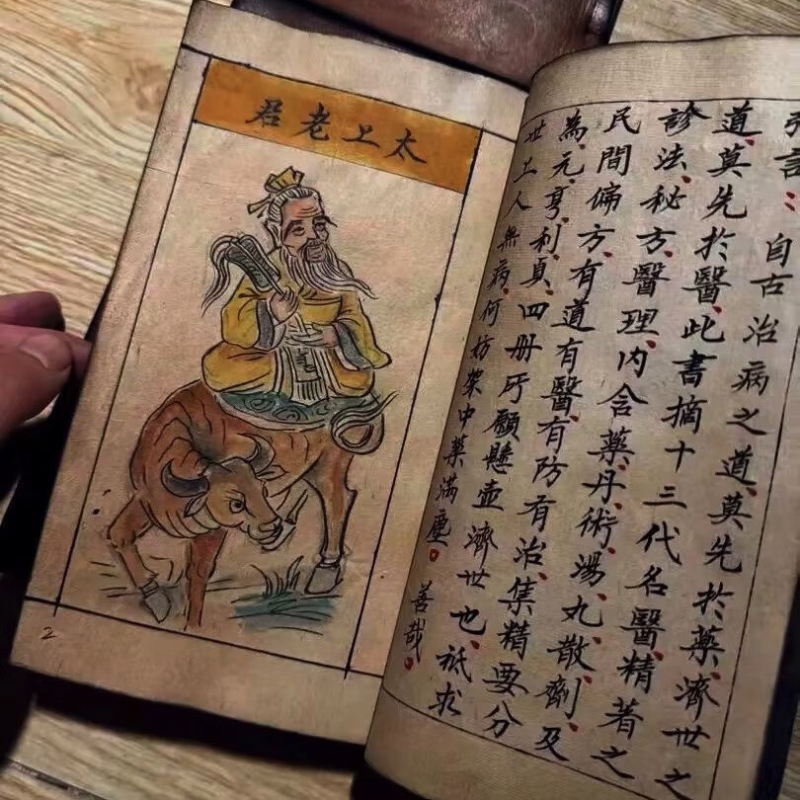 太上老君
2
引言：自古治病之道、莫先於藥、濟世之
道、莫先於醫、此書摘十三代名醫、精著之
診法、秘方、醫理、內含藥、丹、術、湯、丸、散、劑、及
民間偏方、有道有醫、有防有治、集精要分
為、元、亨、利、貞、四册、所願懸壺濟世也、祗求
世上人無病、何妨架中藥滿塵。善哉。